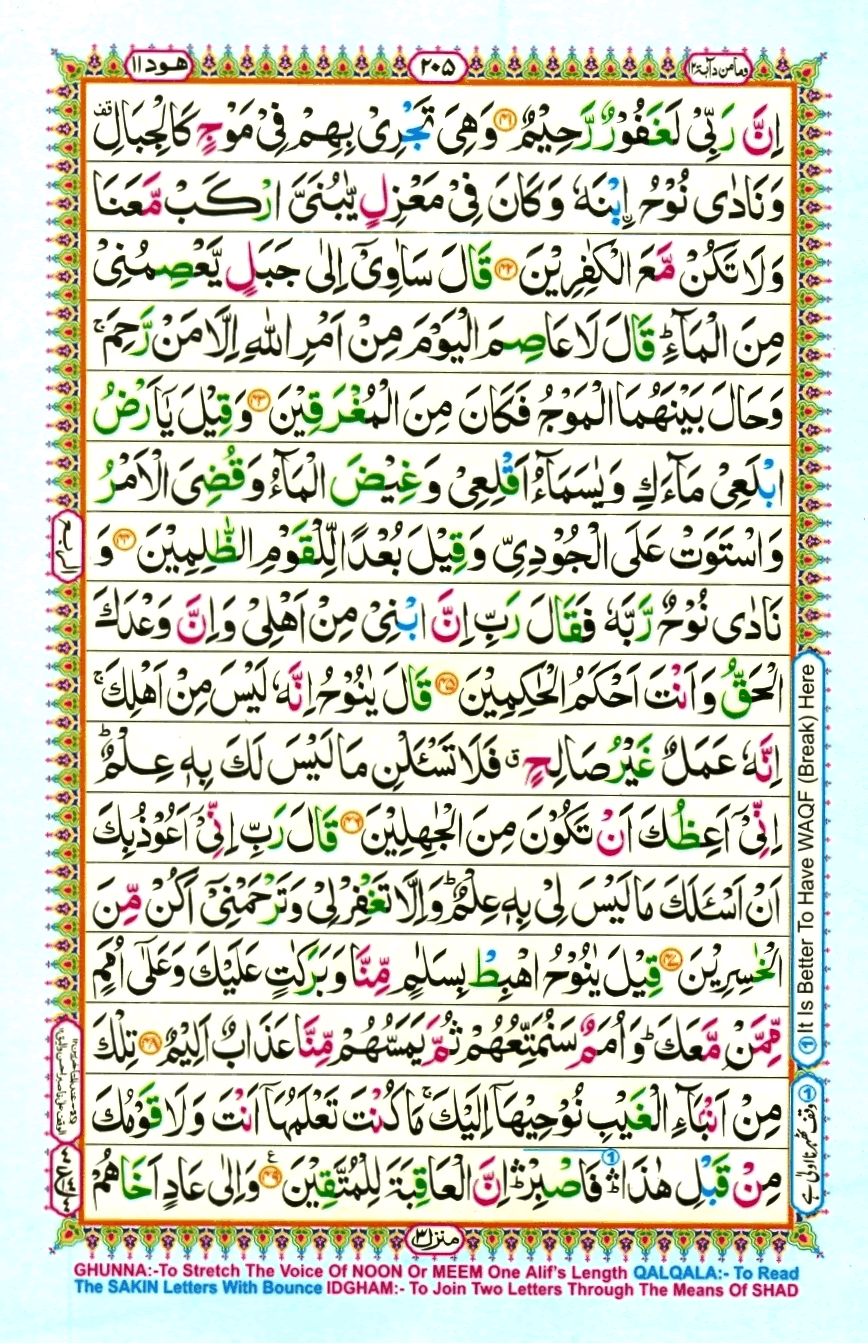 ومامن دآبة ۱۲
۲۰۵
هود ۱۱
اِنَّ رَبِّیْ لَغَفُوْرٌ رَّحِیْمٌ ﴿۴۱﴾ وَهِیَ تَجْرِیْ بِهِمْ فِیْ مَوْجٍ كَالْجِبَالِ قف
وَنَادٰی نُوْحُ اِ۟بْنَهٗ وَكَانَ فِیْ مَعْزِلٍ یّٰبُنَیَّ ارْكَبْ مَّعَنَا
وَلَا تَكُنْ مَّعَ الْكٰفِرِیْنَ ﴿۴۲﴾ قَالَ سَاٰوِیْۤ اِلٰی جَبَلٍ یَّعْصِمُنِیْ
مِنَ الْمَآءِ ؕ قَالَ لَا عَاصِمَ الْیَوْمَ مِنْ اَمْرِ اللّٰهِ اِلَّا مَنْ رَّحِمَ ۚ
وَحَالَ بَیْنَهُمَا الْمَوْجُ فَكَانَ مِنَ الْمُغْرَقِیْنَ ﴿۴۳﴾ وَقِیْلَ یٰۤاَرْضُ
ابْلَعِیْ مَآءَكِ وَیٰسَمَآءُ اَقْلِعِیْ وَغِیْضَ الْمَآءُ وَقُضِیَ الْاَمْرُ
وَاسْتَوَتْ عَلَی الْجُوْدِیِّ وَقِیْلَ بُعْدًا لِّلْقَوْمِ الظّٰلِمِیْنَ ﴿۴۴﴾ وَ
نَادٰی نُوْحٌ رَّبَّهٗ فَقَالَ رَبِّ اِنَّ ابْنِیْ مِنْ اَهْلِیْ وَاِنَّ وَعْدَكَ
الْحَقُّ وَاَنْتَ اَحْكَمُ الْحٰكِمِیْنَ ﴿۴۵﴾ قَالَ یٰنُوْحُ اِنَّهٗ لَیْسَ مِنْ اَهْلِكَ ۚ
اِنَّهٗ عَمَلٌ غَیْرُ صَالِحٍ ق فَلَا تَسْـَٔلْنِ مَا لَیْسَ لَكَ بِهٖ عِلْمٌ ؕ
اِنِّیْۤ اَعِظُكَ اَنْ تَكُوْنَ مِنَ الْجٰهِلِیْنَ ﴿۴۶﴾ قَالَ رَبِّ اِنِّیْۤ اَعُوْذُ بِكَ
اَنْ اَسْـَٔلَكَ مَا لَیْسَ لِیْ بِهٖ عِلْمٌ ؕ وَاِلَّا تَغْفِرْ لِیْ وَتَرْحَمْنِیْۤ اَكُنْ مِّنَ
الْخٰسِرِیْنَ ﴿۴۷﴾ قِیْلَ یٰنُوْحُ اهْبِطْ بِسَلٰمٍ مِّنَّا وَبَرَكٰتٍ عَلَیْكَ وَعَلٰۤی اُمَمٍ
مِّمَّنْ مَّعَكَ ؕ وَاُمَمٌ سَنُمَتِّعُهُمْ ثُمَّ یَمَسُّهُمْ مِّنَّا عَذَابٌ اَلِیْمٌ ﴿۴۸﴾ تِلْكَ
مِنْ اَنْۢبَآءِ الْغَیْبِ نُوْحِیْهَاۤ اِلَیْكَ ۚ مَا كُنْتَ تَعْلَمُهَاۤ اَنْتَ وَلَا قَوْمُكَ
مِنْ قَبْلِ هٰذَا ۛؕ فَاصْبِرْ ۛؕ اِنَّ الْعَاقِبَةَ لِلْمُتَّقِیْنَ ﴿۴۹﴾ ع وَاِلٰی عَادٍ اَخَاهُمْ
① It Is Better To Have WAQF (Break) Here
الربع
منزل ۳
GHUNNA:-To Stretch The Voice Of NOON Or MEEM One Alif's Length QALQALA:- To Read
The SAKIN Letters With Bounce IDGHAM:- To Join Two Letters Through The Means Of SHAD